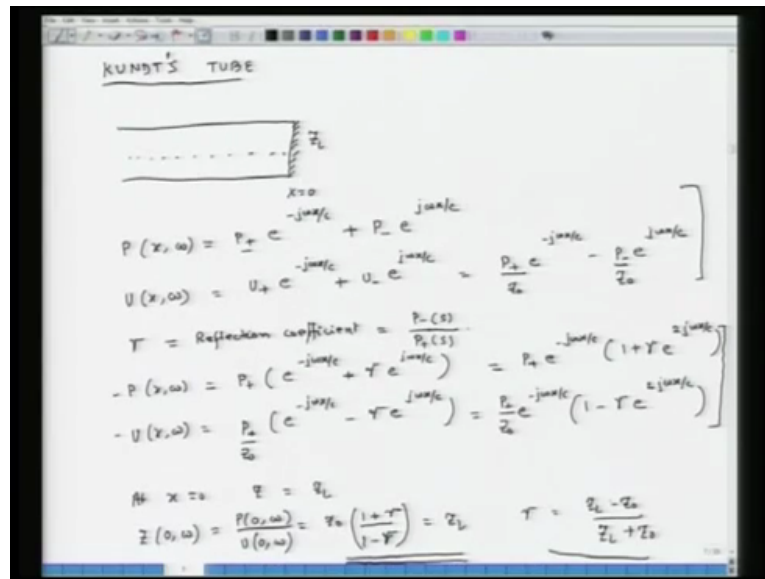 KUNDT'S TUBE
Z_L
x=0
P(x,ω) = P₊ e^{-jωx/c} + P₋ e^{jωx/c}
U(x,ω) = U₊ e^{-jωx/c} + U₋ e^{jωx/c} = P₊/Z₀ e^{-jωx/c} - P₋/Z₀ e^{jωx/c}
r = Reflection coefficient = P₋(s)/P₊(s)
- P(x,ω) = P₊ (e^{-jωx/c} + r e^{jωx/c}) = P₊ e^{-jωx/c} (1 + r e^{2jωx/c})
- U(x,ω) = P₊/Z₀ (e^{-jωx/c} - r e^{jωx/c}) = P₊/Z₀ e^{-jωx/c} (1 - r e^{2jωx/c})
At x=0 Z = Z_L
Z(0,ω) = P(0,ω)/U(0,ω) = Z₀ (1+r/1-r) = Z_L r = Z_L - Z₀/Z_L + Z₀